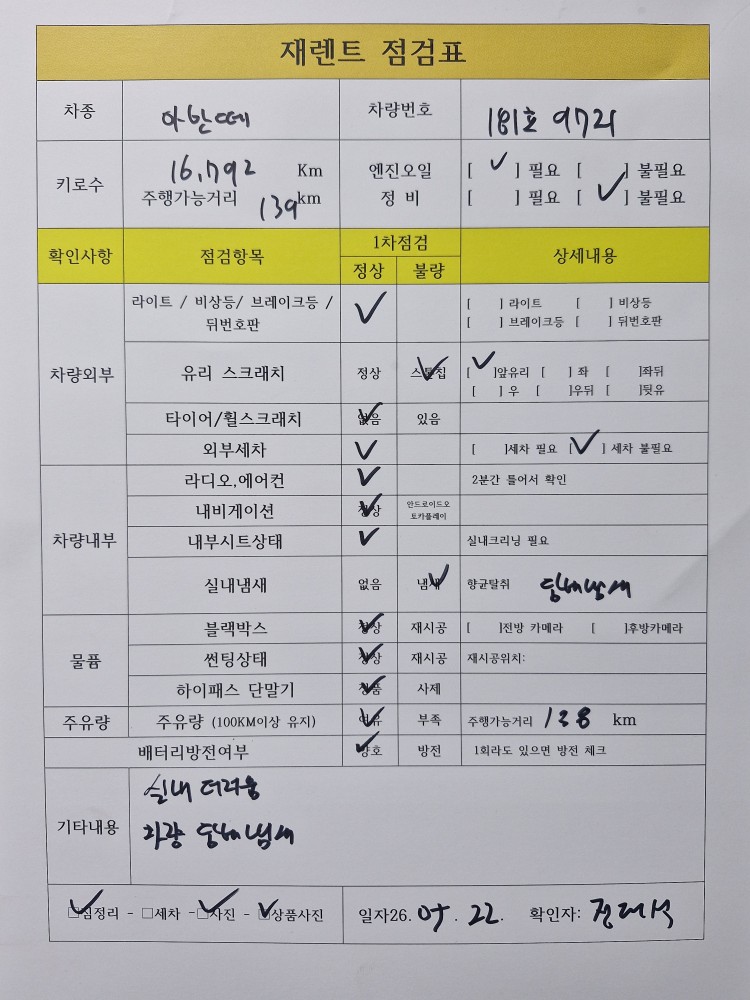 재렌트 점검표
차종 아반떼 차량번호 181호 9721
키로수 16,792 Km 엔진오일 [ ✓ ] 필요 [ ] 불필요
주행가능거리 139 km 정 비 [ ] 필요 [ ✓ ] 불필요
확인사항 점검항목 1차점검 상세내용
정상 불량
차량외부
라이트 / 비상등/ 브레이크등 / 뒤번호판 ✓ [ ] 라이트 [ ] 비상등
[ ] 브레이크등 [ ] 뒤번호판
유리 스크래치 정상 스톤집 ✓ [ ✓ ]앞유리 [ ] 좌 [ ]좌뒤
[ ] 우 [ ]우뒤 [ ]뒷유
타이어/휠스크래치 없음 ✓ 있음
외부세차 ✓ [ ]세차 필요 [ ✓ ] 세차 불필요
차량내부
라디오,에어컨 ✓ 2분간 틀어서 확인
내비게이션 정상 ✓ 안드로이드오토카플레이
내부시트상태 ✓ 실내크리닝 필요
실내냄새 없음 냄새 ✓ 향균탈취 담배냄새
물품
블랙박스 정상 ✓ 재시공 [ ]전방 카메라 [ ]후방카메라
썬팅상태 정상 ✓ 재시공 재시공위치:
하이패스 단말기 정품 ✓ 사제
주유량 주유량 (100KM이상 유지) 여유 ✓ 부족 주행가능거리 138 km
배터리방전여부 양호 ✓ 방전 1회라도 있으면 방전 체크
기타내용
실내 더러움
차량 담배냄새
☑짐정리 - □세차 - ☑사진 - ☑상품사진 일자26. 05. 22. 확인자: 정대석